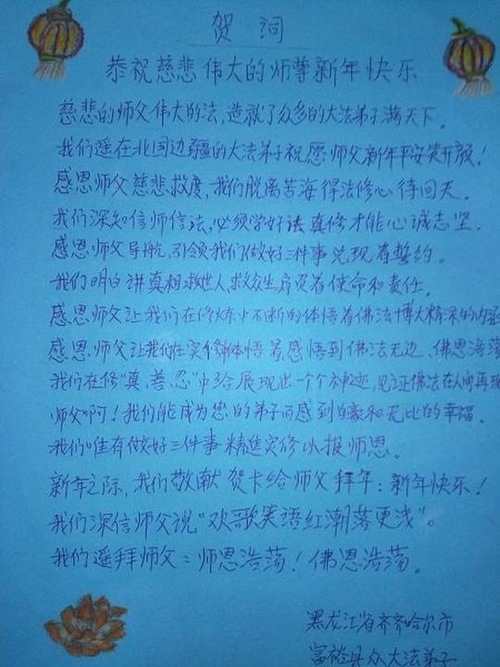 贺词
恭祝慈悲伟大的师尊新年快乐
慈悲的师父伟大的法,造就了众多的大法弟子满天下。
我们遥在北国边疆的大法弟子祝愿师父新年平安笑开颜!
感恩师父慈悲救度,我们脱离苦海得法修心待回天。
我们深知信师信法,必须学好法真修才能心诚志坚。
感恩师父导航,引领我们做好三件事兑现有誓约。
我们明白讲真相救世人,救众生肩负着使命和责任。
感恩师父让我们在修炼中不断的体悟着佛法博大精深的内
感恩师父让我们在实修体悟着感悟到佛法无边,佛恩浩荡
我们在修“真、善、忍”中给展现出一个个神迹,见证佛法在人间再现
师父啊!我们能成为您的弟子而感到自豪和无比的幸福。
我们唯有做好三件事精进实修以报师恩。
新年之际,我们敬献贺卡给师父拜年:新年快乐!
我们深信师父说“欢歌笑语红潮落更浅”。
我们遥拜师父:师恩浩荡!佛恩浩荡。
黑龙江省齐齐哈尔市
富裕县众大法弟子